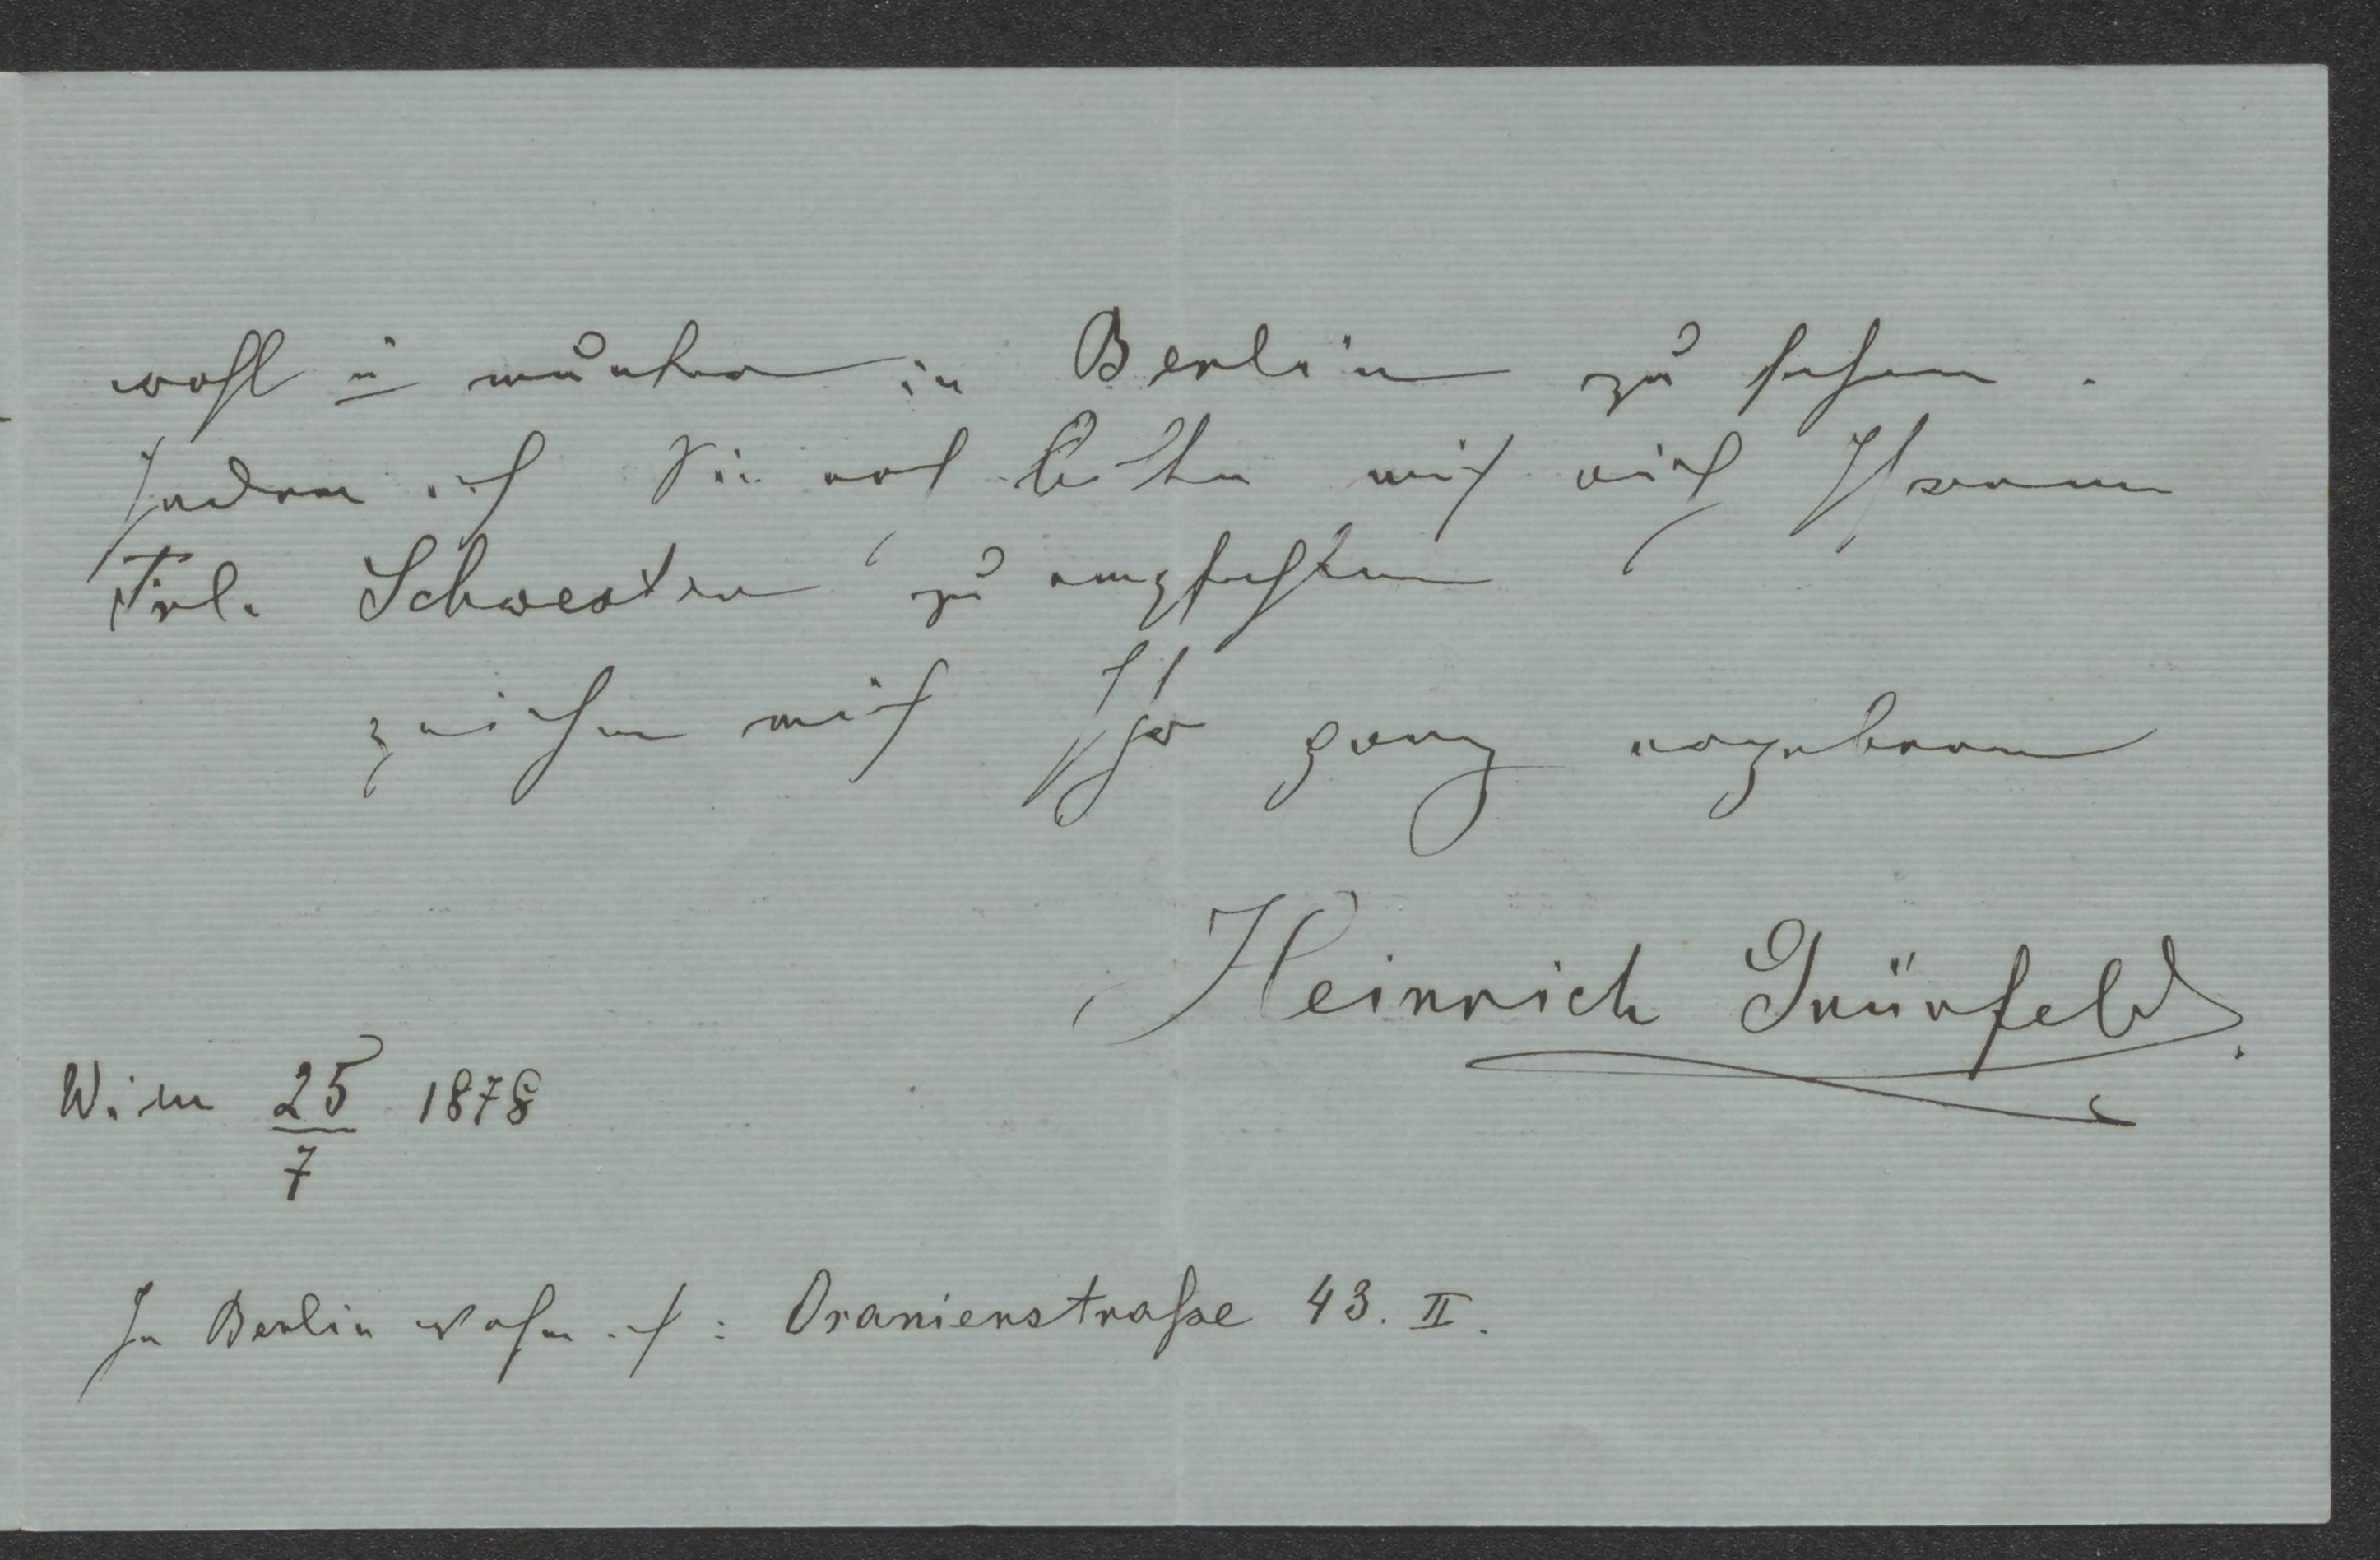 wohl u munter in Berlin zu sehen.
Indem ich Sie noch bitte mich auch Ihrem
Frl. Schwester zu empfehlen
zeichne mich Ihr ganz ergebener
Heinrich Grünfeld.
Wien 25/7 1878
In Berlin wohne ich: Oranienstraße 43. II.